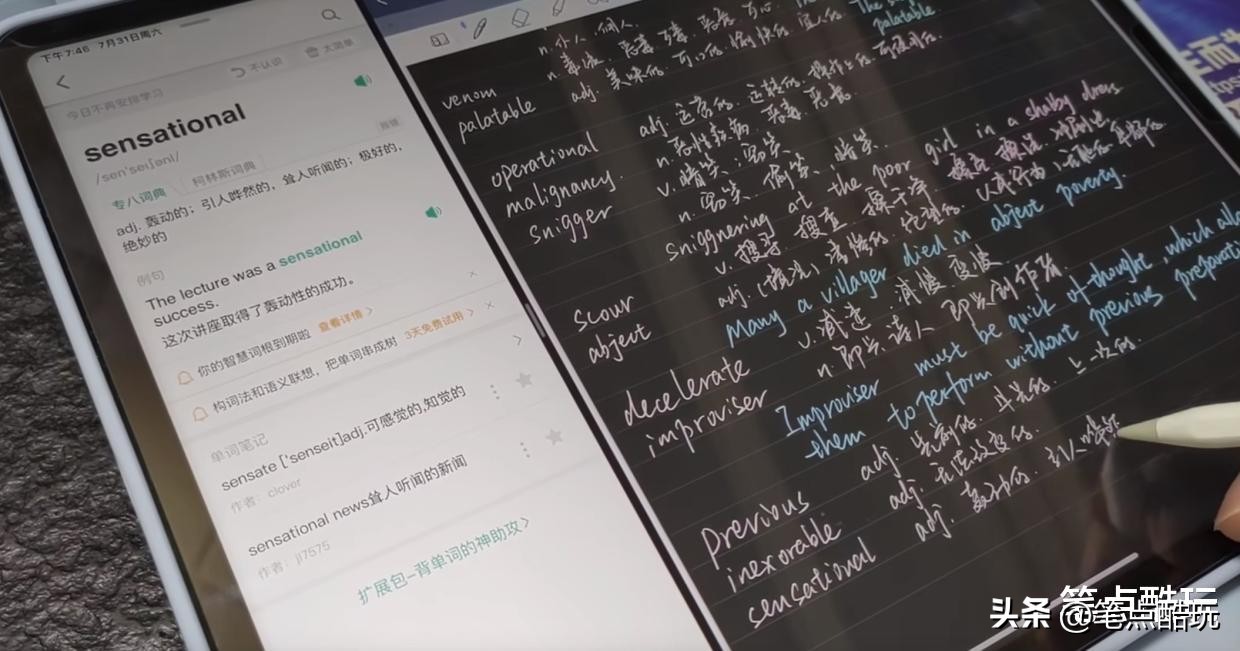 下午7:46 7月31日周六
今日不再安排学习
不认识
太简单
sensational
/sen'seɪʃənl/
报错
专八词典
柯林斯词典
adj. 轰动的；引人哗然的，耸人听闻的；极好的，
绝妙的
例句
The lecture was a sensational
success.
这次讲座取得了轰动性的成功。
你的智慧词根到期啦 查看详情 >
构词法和语义联想，把单词串成树 3天免费试用 >
单词笔记
sensate ['senseit]adj.可感觉的,知觉的
作者：clover
sensational news耸人听闻的新闻
作者：jl7575
扩展包–背单词的神助攻>
n. 个人
palatable
venom
palatable adj. 美味的 可口的 愉快的 宜人的
operational adj. 运营的 运转的
malignancy. n. 恶性疾病 恶毒
snigger v. 暗笑；窃笑
n. 窃笑 偷笑 暗笑
sniggnering at the poor girl in a shabby dress
scour v. 搜寻 搜查 擦干净 擦亮 擦洗
abject adj.
Many a villager died in abject poverty.
decelerate v. 减速 减慢 变慢
improviser n. 即兴诗人 即兴创作者
Improviser must be quick of thought, which allo
them to perform without previous preparati
previous adj. 先前的
inexorable adj. 无法改变的
sensational adj. 轰动的 引人哗然
生而为
头条 @笔点酷玩
笔点酷玩